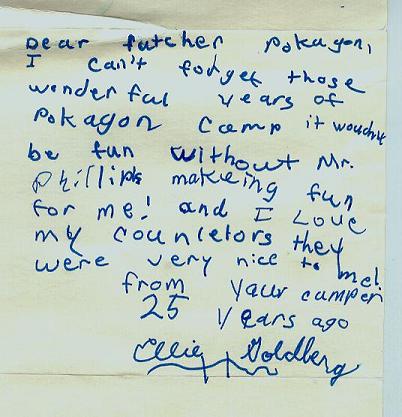 Dear futcher Pokagon,
I can't fodget those
wonderful years of
Pokagon camp it woudn't
be fun without Mr.
Phillips makeing fun
for me! and I Love
my counletors they
were very nice to me!
from your camper
25 years ago
Ellie Goldberg